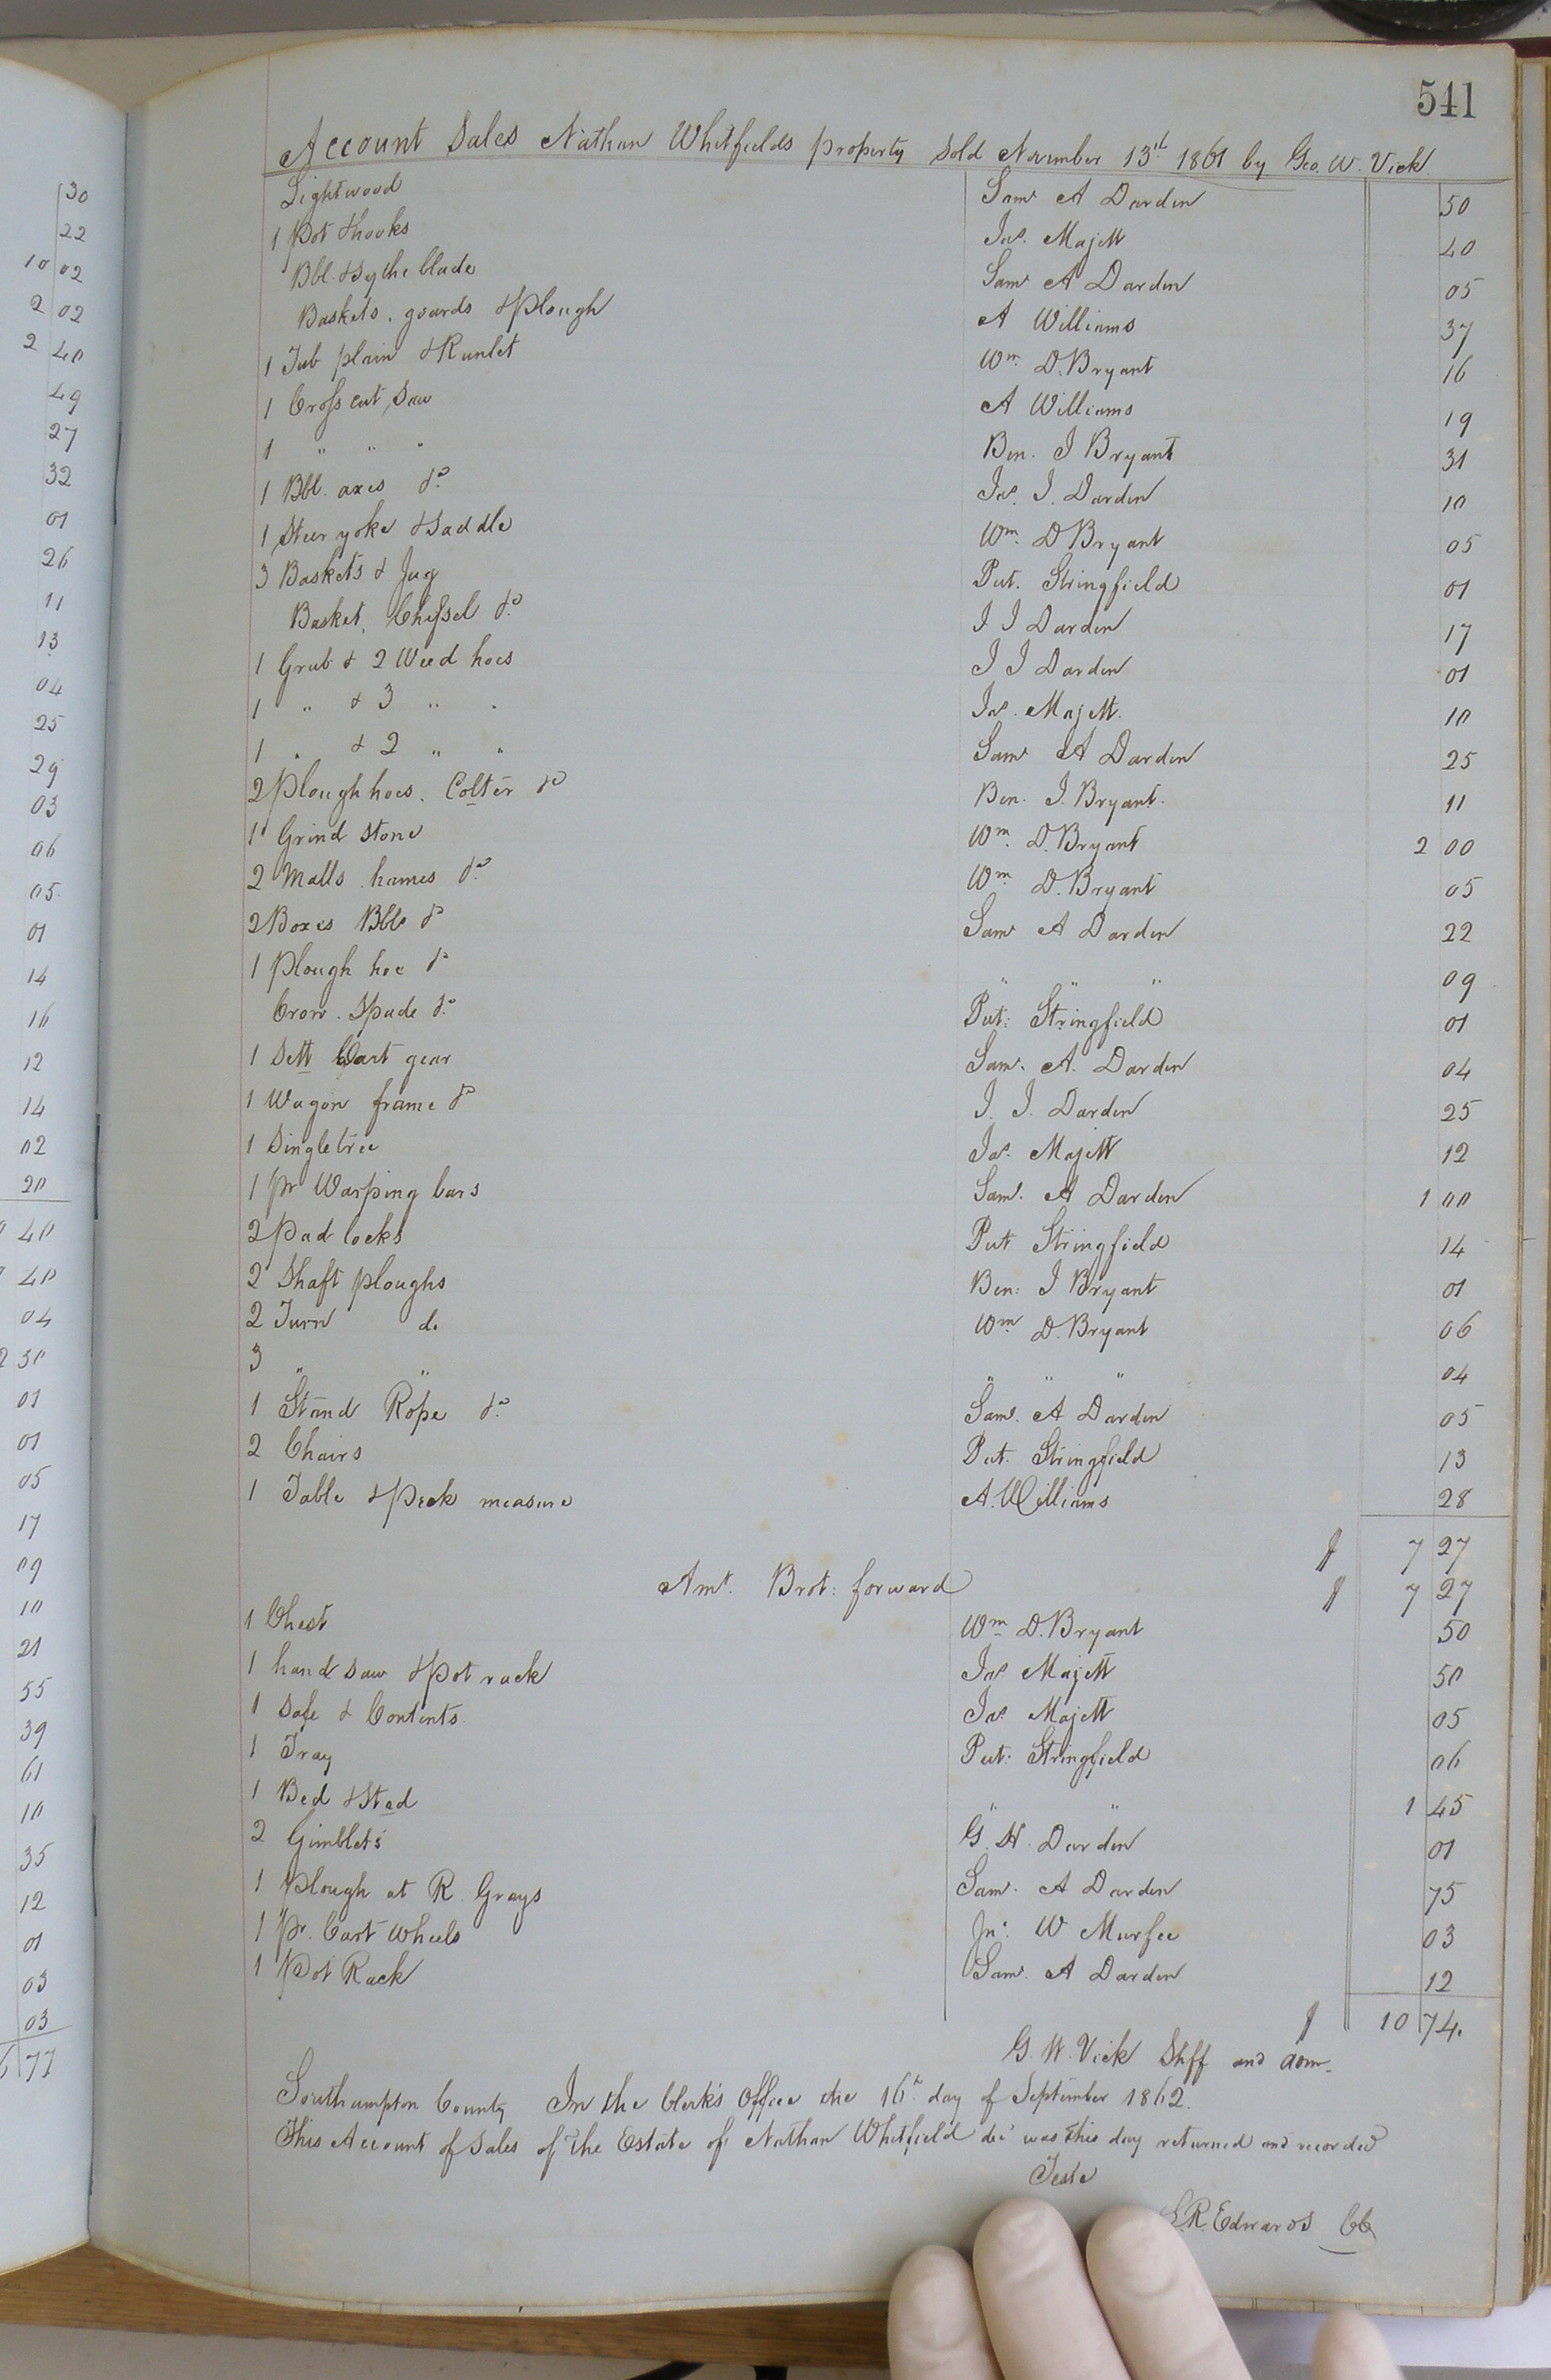 541
Account Sales Nathan Whitfields property sold November 13th 1861 by Geo. W. Vick
Lightwood Saml A Darden 50
1 Pot & hooks Jas. Majett 40
Bbl. & Sythe blade Saml A Darden 05
Baskets, gourds & Plough A Williams 37
1 Tub plain & Runlet Wm. D. Bryant 16
1 Cross cut Saw A Williams 19
1 " " " Ben. J Bryant 31
1 Bbl. axes &c Jas. J. Darden 10
1 Steer yoke & Saddle Wm. D Bryant 05
3 Baskets & Jug Put. Stringfield 01
Basket, Chissel &c J J Darden 17
1 Grub & 2 Weed hoes J J Darden 01
1 " & 3 " " Jas. Majett. 10
1 " & 2 " " Saml A Darden 25
2 Plough hoes. Colter &c Ben. J. Bryant. 11
1 Grind Stone Wm. D. Bryant 2 00
2 Malls. hames &c Wm D. Bryant 05
2 Boxes Bbls &c Saml A Darden 22
1 Plough hoe &c " " " 09
Crow. Spade &c Put: Stringfield 01
1 Sett Cart gear Saml. A. Darden 04
1 Wagon frame &c J. J. Darden 25
1 Singletree Jas. Majett 12
1 Pr Warping bars Saml. A Darden 1 00
2 Pad locks Put Stringfield 14
2 Shaft ploughs Ben: J Bryant 01
2 Turn do Wm. D. Bryant 06
3 " " " " " 04
1 Stand Rope &c Saml. A Darden 05
2 Chairs Put. Stringfield 13
1 Table & Peck measure A. Williams 28
$ 7 27
Amt. Brot: forward $ 7 27
1 Chest Wm D. Bryant 50
1 hand saw & Pot rack Jas Majett 50
1 Safe & Contents Jas Majett 05
1 Tray Put: Stringfield 06
1 Bed & Sted " " 1 45
2 Gimblets G. H. Darden 01
1 Plough at R. Grays Saml. A Darden 75
1 Pr. Cart Wheels Jno. W Murfee 03
1 Pot Rack Saml. A Darden 12
$ 10 74.
G. W. Vick Shff and adm.
Southampton County In the Clerk's Office the 16th day of September 1862.
This Account of Sales of the Estate of Nathan Whitfield decd was this day returned and recorded
Teste
L. R. Edwards CC
30
22
10 02
2 02
2 40
49
27
32
01
26
11
13
04
25
29
03
06
05
01
14
16
12
14
02
20
40
40
04
2 30
01
01
05
17
09
10
21
55
39
61
10
35
12
01
03
03
77